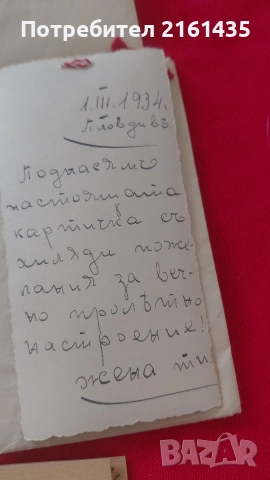 Потребител 2161435
1.III.1934.
Пловдивъ.
Поднасямъ
настоящата
картичка съ
хиляди поже-
лания за веч-
но пролѣтно
настроение!
жена ти.
BAZAR